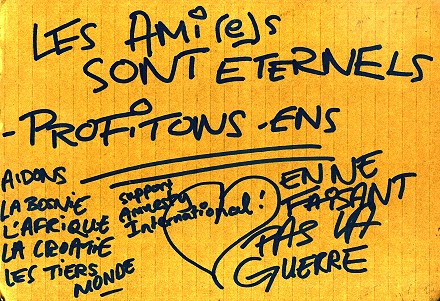 LES AMi(e)s
SONT ETERNELS
- PROFITONS - ENS
AIDONS
LA BOSNIE
L'AFRIQUE
LA CROATIE
LES TIERS
MONDE
support
Amnesty
International!
EN NE
FAISANT
PAS LA
GUERRE